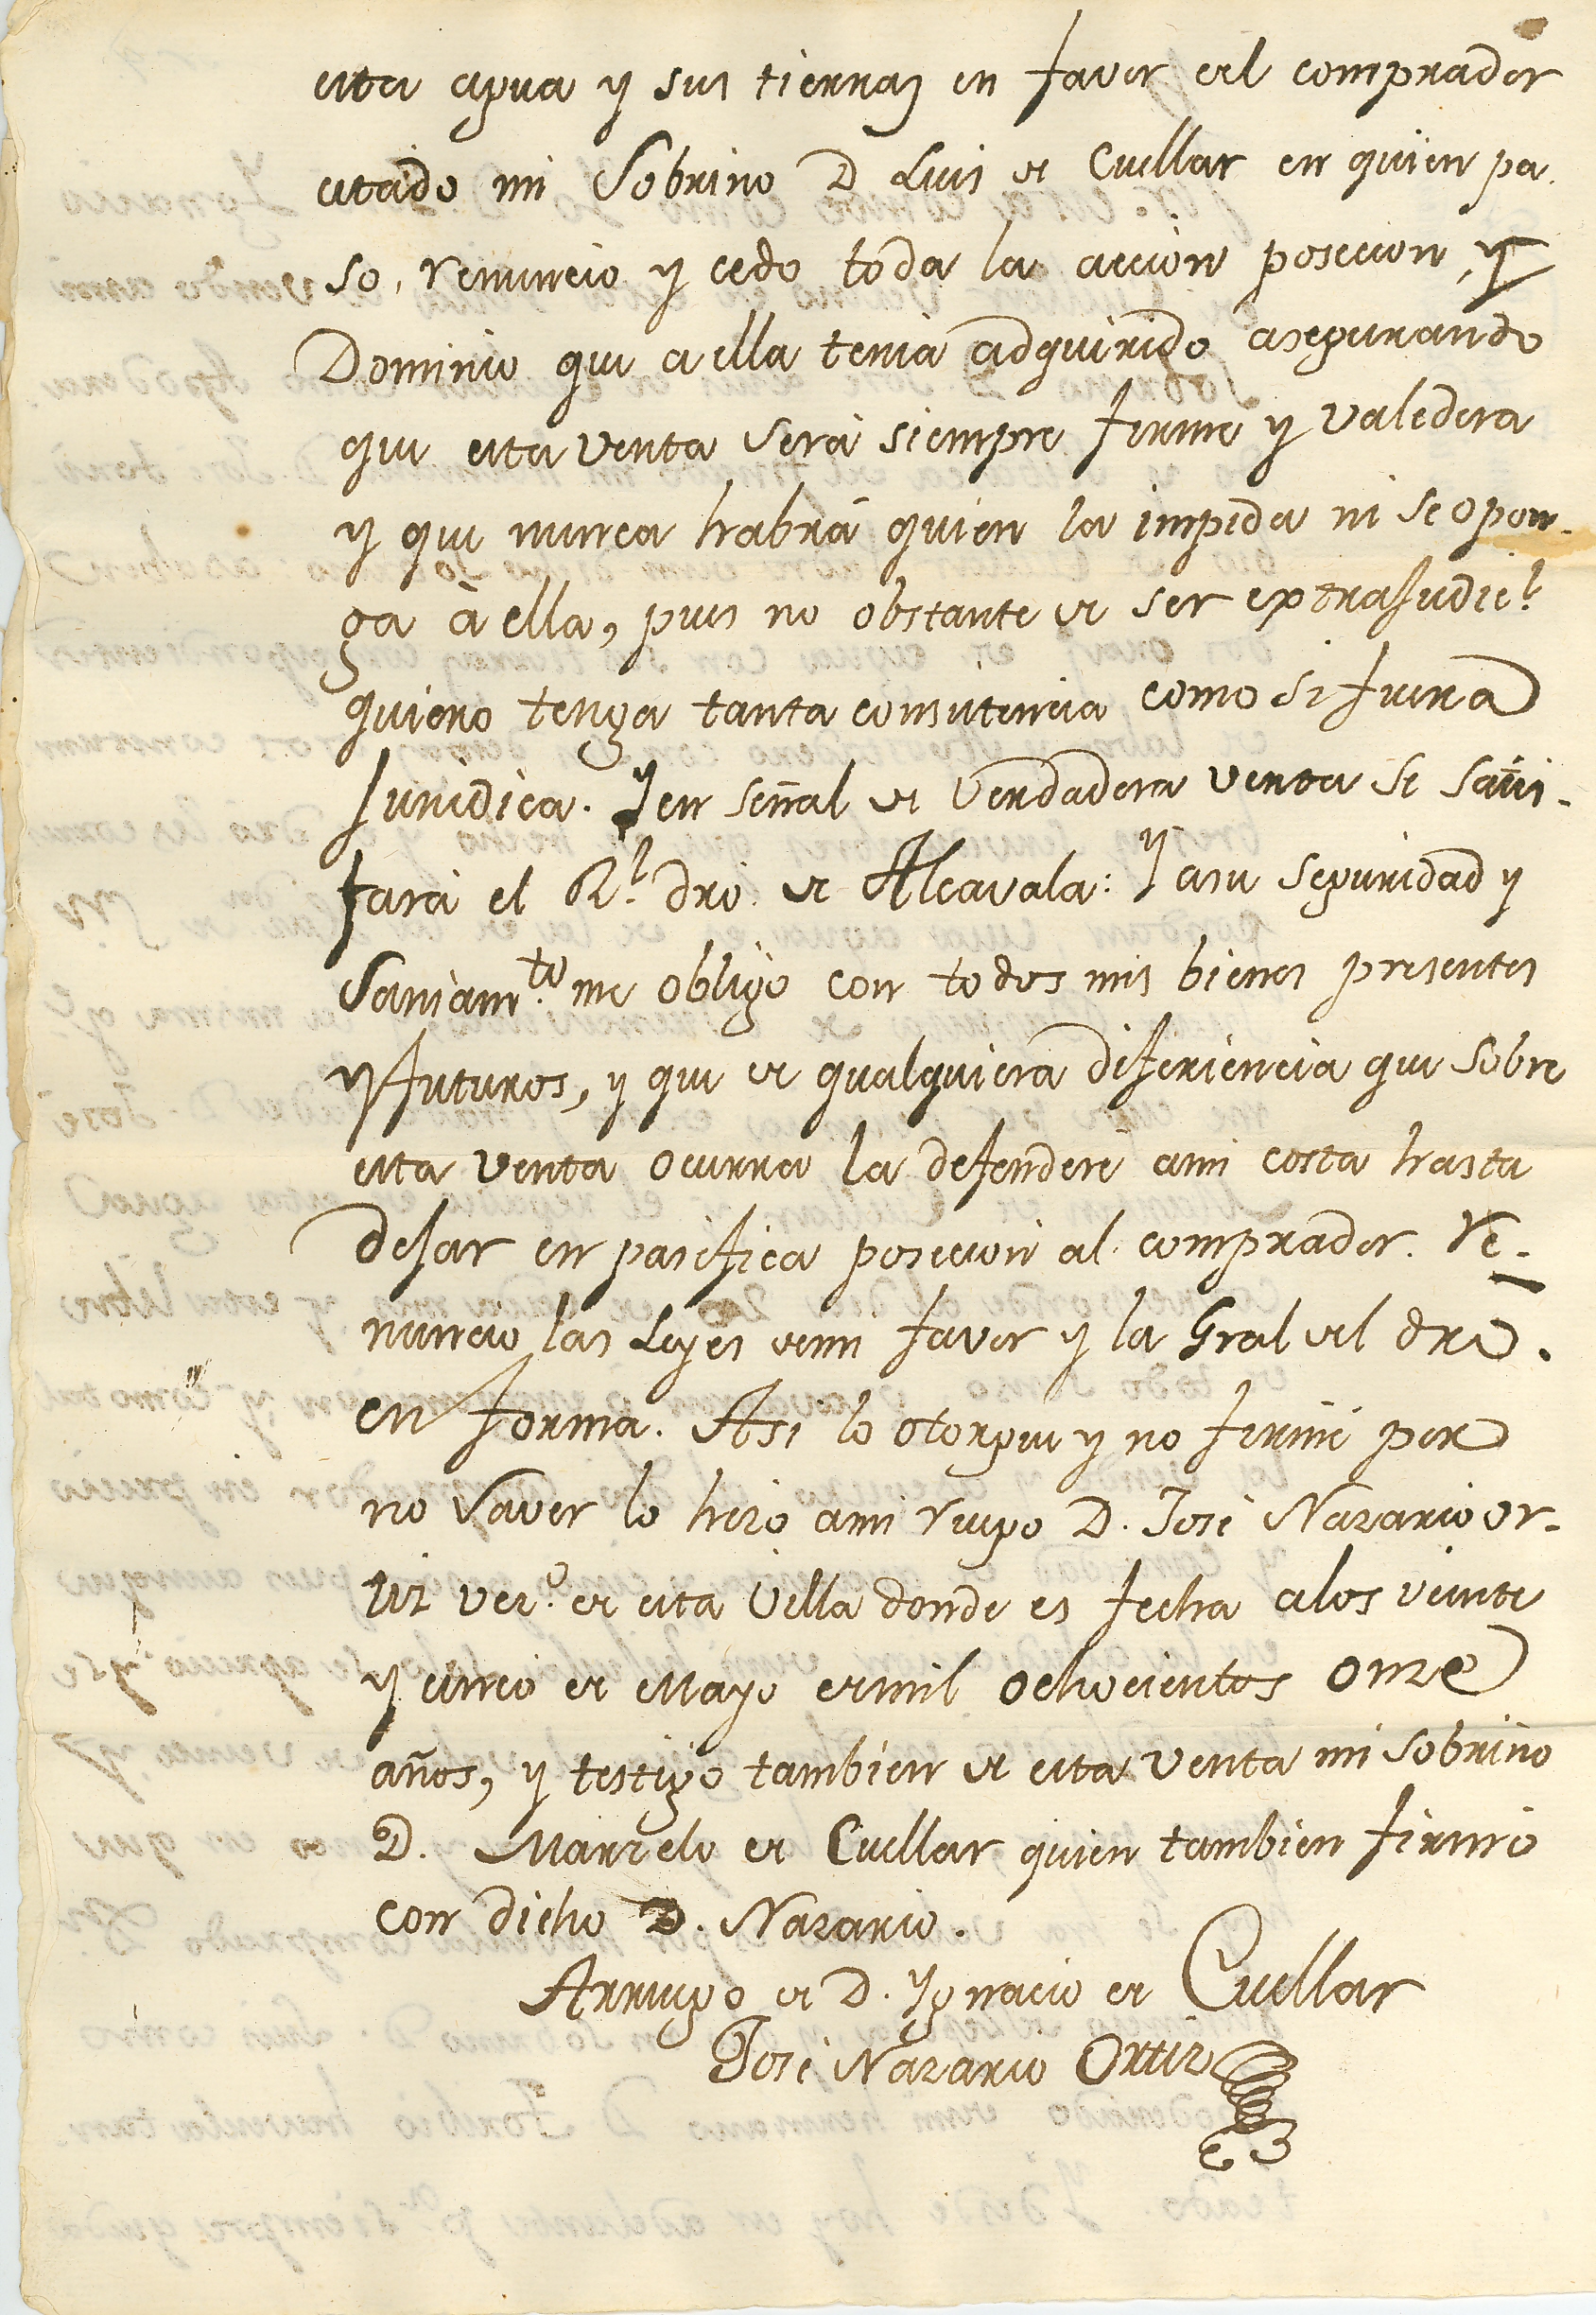 esta agua y sus tierras en favor del comprador
citado mi Sobrino D Luis de Cuellar en quien pa-
so, renuncio y cedo toda la accion posecion, y
Dominio que a ella tenia adquirido asegurando
que esta venta será siempre firme y valedera
y que nunca habrá quien la impida ni se opon-
ga à ella, pues no obstante de ser extrajudic.l
quiero tenga tanta consistencia como si fuera
Juridica. Y en señal de verdadera venta se satis-
fará el R.l dro de Alcavala: Y a su seguridad y
Saniam.to me obligo con todos mis bienes presentes
y futuros, y que de qualquiera diferiencia que sobre
esta venta ocurra la defenderé a mi costa hasta
dejar en pasifica posecion al comprador. Re-
nuncio las Leyes de mi favor y la Gral del dro.
en forma. Asi lo otorgue y no firmé por
no saver lo hizo a mi ruego D. José Nazario or-
tiz vez.o de esta Villa donde es fecha a los veinte
y cinco de Mayo de mil ochocientos onze
años, y testigo tambien de esta venta mi sobrino
D. Marzelo de Cuellar quien tambien firmó
con dicho D. Nazario.
Arruego de D. Ygnacio de Cuellar
José Nazario Ortiz